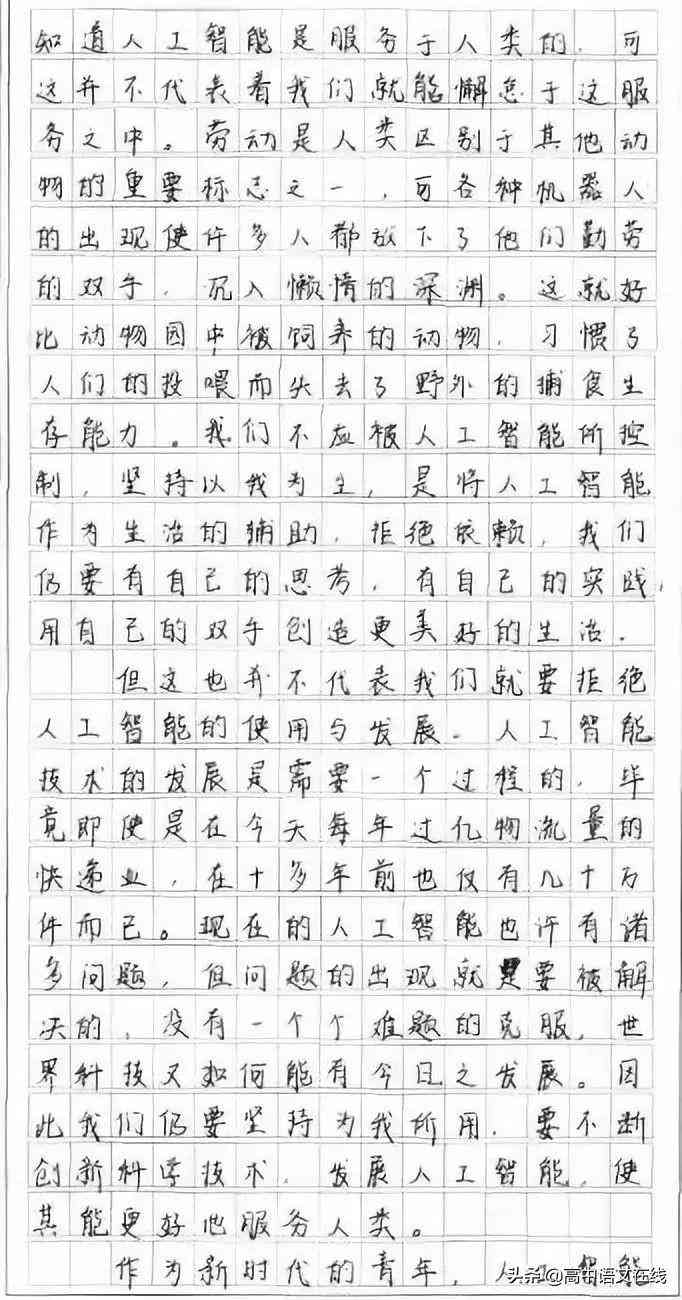 知道人工智能是服务于人类的，可
这并不代表着我们就能懈怠于这服
务之中。劳动是人类区别于其他动
物的重要标志之一，可各种机器人
的出现使许多人都放下了他们勤劳
的双手，沉入懒惰的深渊。这就好
比动物园中被饲养的动物，习惯了
人们的投喂而失去了野外的捕食生
存能力。我们不应被人工智能所控
制，坚持以我为主，是将人工智能
作为生活的辅助，拒绝依赖，我们
仍要有自己的思考，有自己的实践，
用自己的双手创造更美好的生活。
但这也并不代表我们就要拒绝
人工智能的使用与发展。人工智能
技术的发展是需要一个过程的，毕
竟即使是在今天每年过亿物流量的
快递业，在十多年前也仅有几十万
件而已。现在的人工智能也许有诸
多问题，但问题的出现就是要被解
决的，没有一个个难题的克服，世
界科技又如何能有今日之发展。因
此我们仍要坚持为我所用，要不断
创新科学技术，发展人工智能，使
其能更好地服务人类。
作为新时代的青年，人工智能
头条@高中语文在线